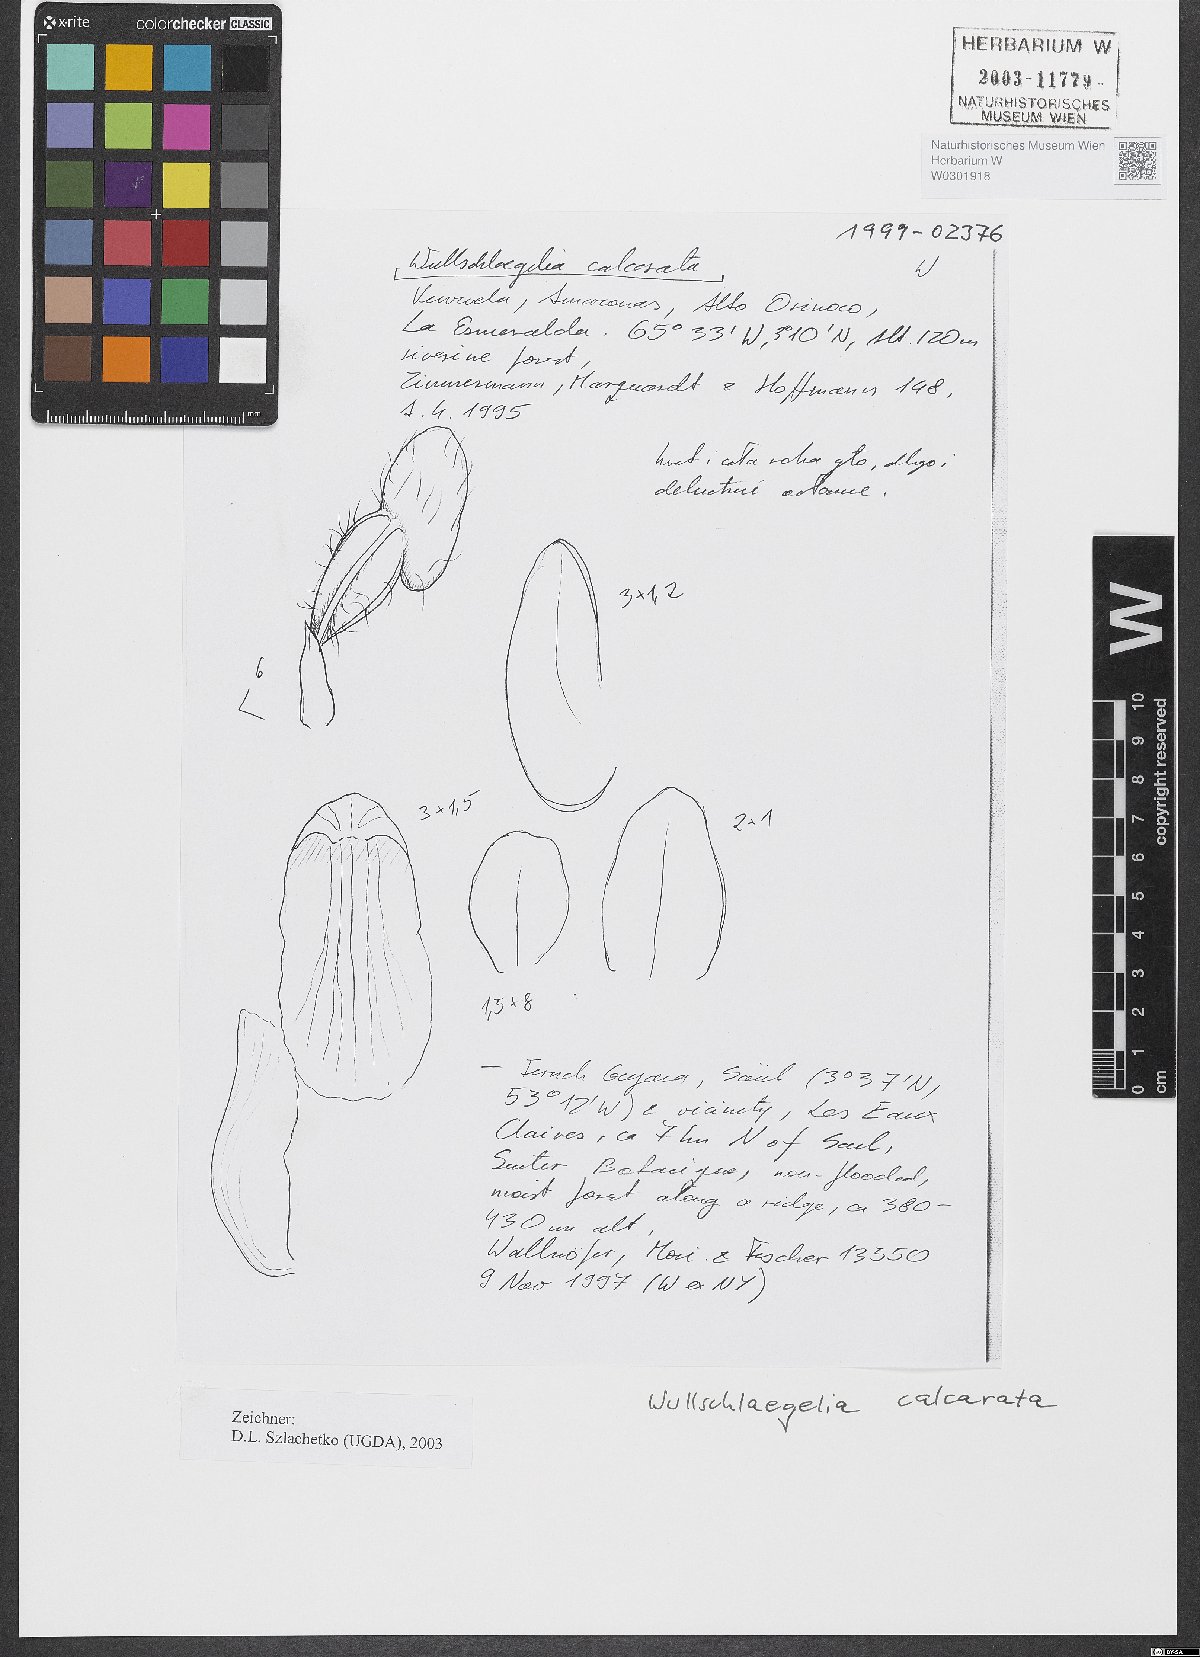 x-rite colorchecker CLASSIC
mm
HERBARIUM W
2003-11779-
NATURHISTORISCHES
MUSEUM WIEN
Naturhistorisches Museum Wien
Herbarium W
W0301918
1999-02376
W
Wullschlaegelia calcarata
Amazonas, Alto Orinoco,
La Esmeralda. 65°33'W, 3°10'N, Alt. 120m
riverine forest,
Zimmermann, Marquardt & Hoffmann 148,
1.4.1995
6
3×1,2
3×1,5
2×1
1,3×8
— French Guyana, Saül (3°37'N,
53°12'W) & vicinity, Les Eaux
Claires, ca 7 km N of Saul,
Botanique, non-flooded,
moist forest along a ridge, ca 380-
430m alt,
Wallnöfer, Mori & Fischer 13550
9 Nov 1997 (W ex NY)
Wullschlaegelia calcarata
Zeichner:
D.L. Szlachetko (UGDA), 2003
W
0 1 2 3 4 5 6 7 8 9 10
cm
copyright reserved
BY-SA